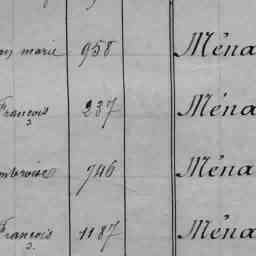 marie 958 Ména
Francois 237 Ména
3
mbroise 746 Ména
Francois 1187 Ména
2.